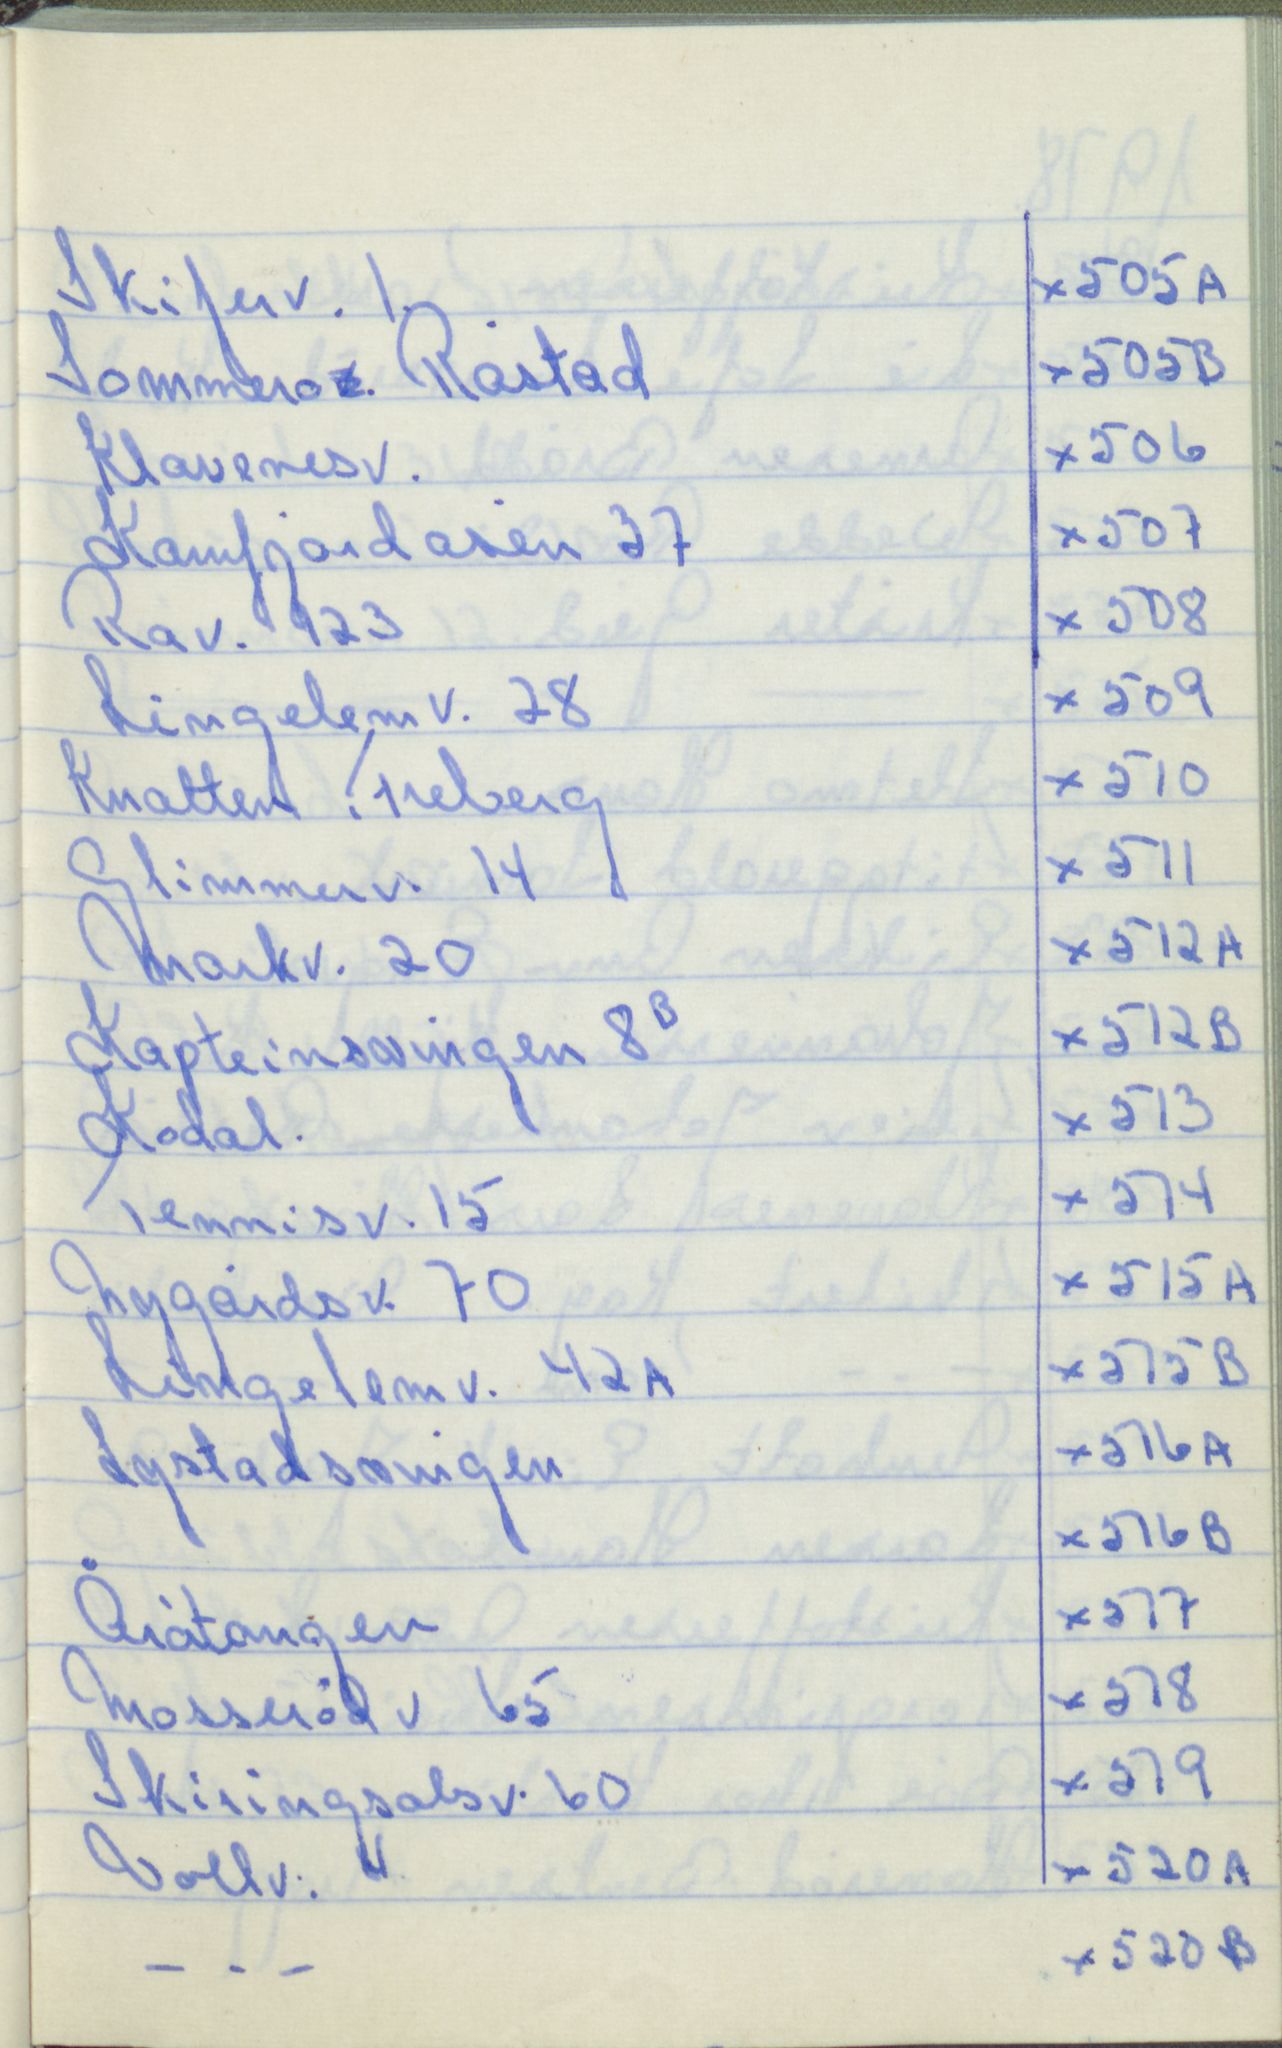 Skiferv. 1. x 505A
Sommeroz. Råstad x 505B
Klavenesv. x 506
Kamfjordåsen 37 x 507
Rav. 123 x 508
Lingelemv. 28 x 509
Knatten Freberg x 510
Glimmerv. 14 x 511
Markv. 20 x 512A
Kapteinsvingen 8B x 512B
Kodal. x 513
Tennisv. 15 x 514
Nygårdsv. 70 x 515A
Lingelemv. 42A x 515B
Lystadsvingen x 516A
x 516B
Åråtangen x 517
Mosserødv 65 x 518
Skiringsalsv. 60 x 519
Vollv. 4 x 520A
- - - x 520B